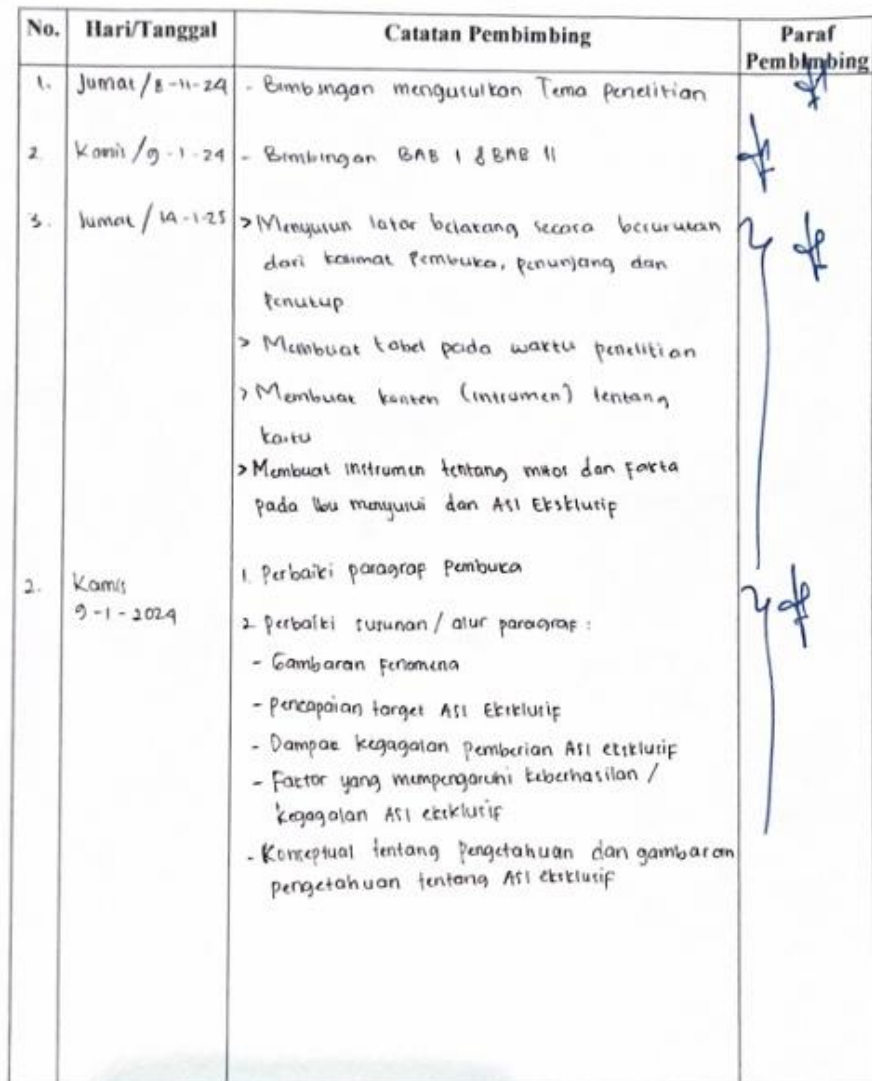 No. Hari/Tanggal Catatan Pembimbing Paraf Pembimbing
1. Jumat / 8-11-24 - Bimbingan mengusulkan Tema penelitian
2. Kamis / 9-1-24 - Bimbingan BAB I & BAB II
3. Jumat / 14-1-25 > Menyusun latar belakang secara berurutan
dari kalimat Pembuka, penunjang dan
Penutup
> Membuat tabel pada waktu penelitian
> Membuat konten (intrumen) tentang
kartu
> Membuat instrumen tentang mitos dan Fakta
pada Ibu menyusui dan ASI Eksklutif
2. Kamis 1. Perbaiki paragraf Pembuka
9-1-2024 2. perbaiki susunan / alur paragraf :
- Gambaran Fenomena
- pencapaian target ASI Eksklutif
- Dampak kegagalan pemberian ASI eksklutif
- Factor yang mempengaruhi keberhasilan /
kegagalan ASI eksklutif
- Konseptual tentang Pengetahuan dan gambaran
pengetahuan tentang ASI eksklutif